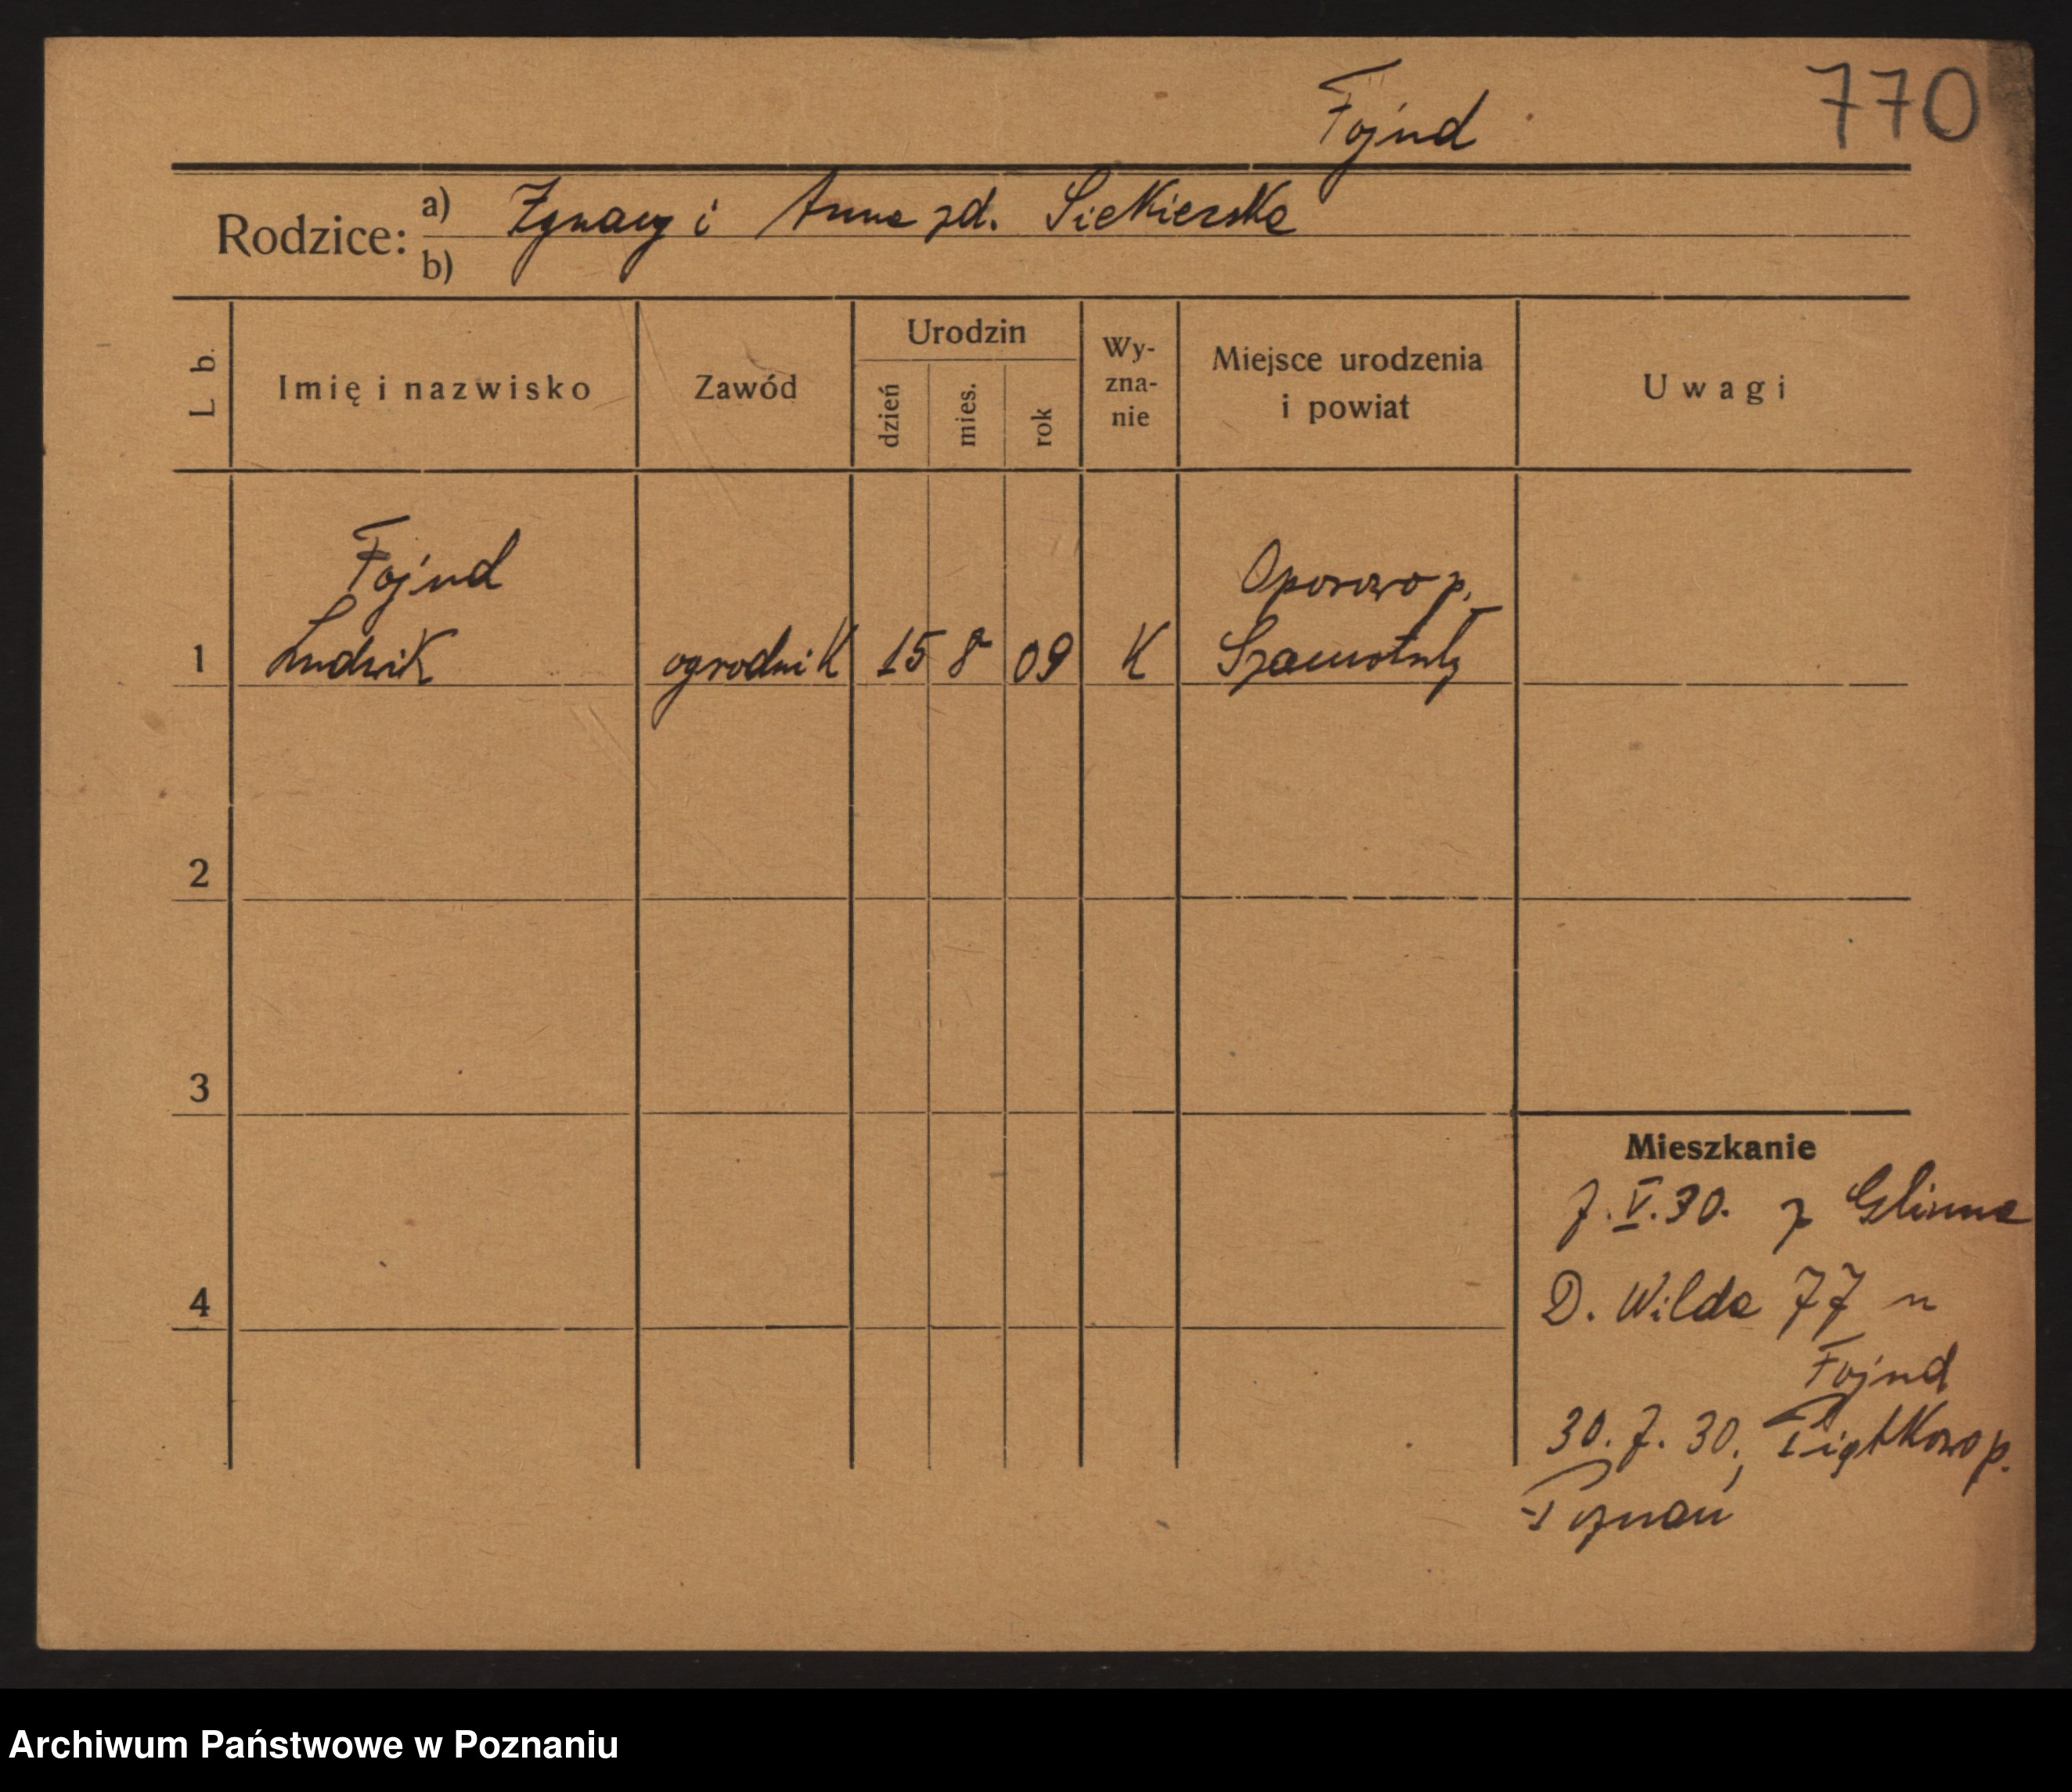 770
Fojud
Rodzice: a) Ignacy i Anna zd. Siekierska
b)
L b. Imię i nazwisko Zawód Urodzin dzień mies. rok Wy-zna-nie Miejsce urodzenia i powiat Uwagi
Fojud Oporowo p.
1 Ludwik ogrodnik 15 8 09 K Szamotuły
2
3
4
Mieszkanie
7.V.30. z Glinna
D. Wilda 77 u
Fojud
30.7.30, Piątkowo p.
Poznań
Archiwum Państwowe w Poznaniu